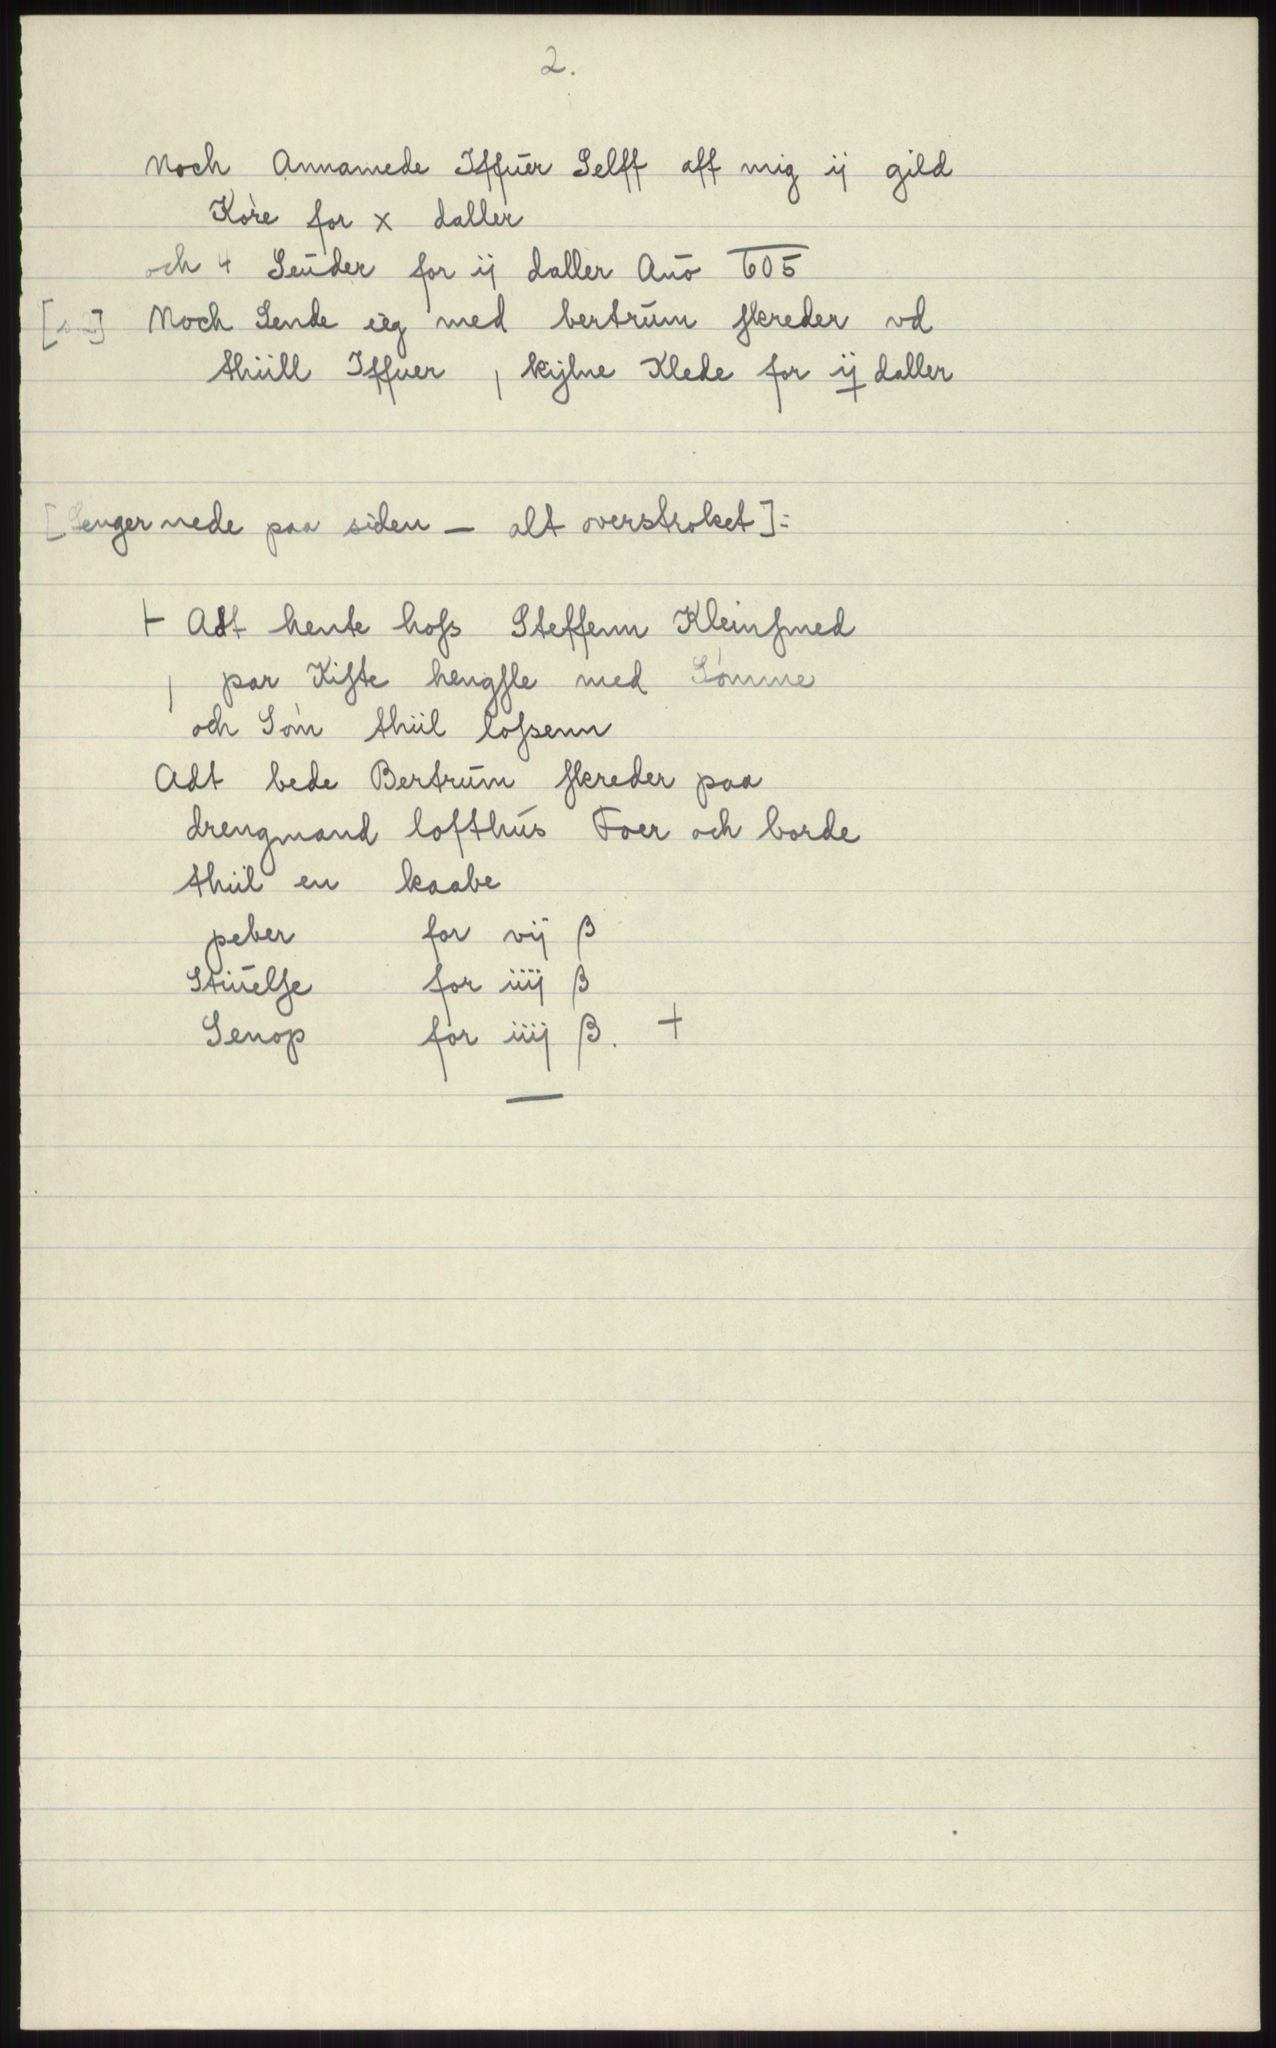 2.
Noch Annamede Iffuer Selff aff mig ij gild
Køre for x daller
och 4 Seuder for ij daller Ano 605
Noch Sende ieg med bertrum skreder vd
thiill Iffuer , kijlne Klede for ij daller
[Lenger nede paa siden — alt overstroket]:
+ Adt hente hoss Steffenn Kleinsmed
, par Kiste hengsle med Sømme
och Søm thiil lossenn
Adt bede Bertrum skreder paa
drengmand lofthus Foer och borde
thiil en kaabe
peber for vij β
Stiuelse for iiij β
Senop for iiij β. +